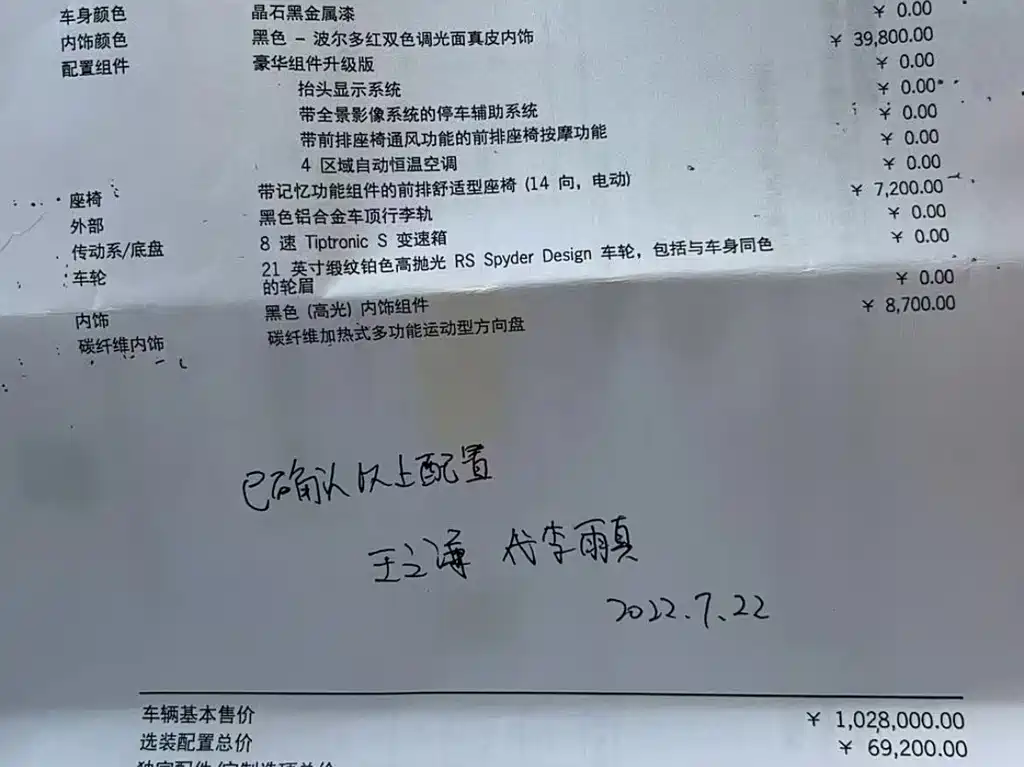 车身颜色 晶石黑金属漆 ¥ 0.00
内饰颜色 黑色 – 波尔多红双色调光面真皮内饰 ¥ 39,800.00
配置组件 豪华组件升级版 ¥ 0.00
抬头显示系统 ¥ 0.00
带全景影像系统的停车辅助系统 ¥ 0.00
带前排座椅通风功能的前排座椅按摩功能 ¥ 0.00
4 区域自动恒温空调 ¥ 0.00
座椅 带记忆功能组件的前排舒适型座椅 (14 向, 电动) ¥ 7,200.00
外部 黑色铝合金车顶行李轨 ¥ 0.00
传动系/底盘 8 速 Tiptronic S 变速箱 ¥ 0.00
车轮 21 英寸缎纹铂色高抛光 RS Spyder Design 车轮, 包括与车身同色
的轮眉 ¥ 0.00
内饰 黑色 (高光) 内饰组件 ¥ 8,700.00
碳纤维内饰 碳纤维加热式多功能运动型方向盘
已确认以上配置
王之 代李雨真
2022.7.22
车辆基本售价 ¥ 1,028,000.00
选装配置总价 ¥ 69,200.00